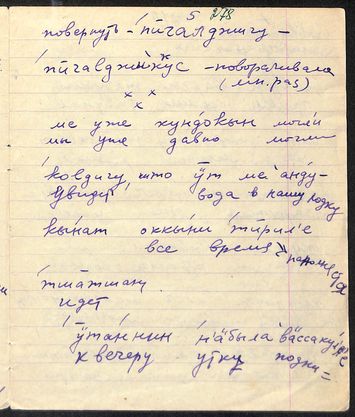 5 278
повернуть - п̄чалджигу -
п̄чалджийкус - поворачивала
(мн. раз)
× × ×
ме уже кундокын моге́л
мы уже давно могли
ко́лдигу, што ӱт ме анду-
Увидел вода в нашу лодку
кы́нат оккы́ни тӣрил'е
все время наполнена
тшатшан
идет
ӱтӓнин н'а́была ва̄ссаку
к вечеру утки подни=